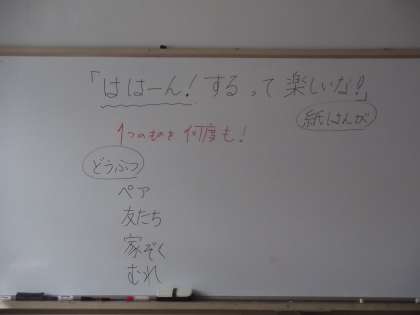 「ははーん！するって楽しいな？」
紙はんが
1つのものを何度も！
どうぶつ
ペア
友だち
家ぞく
むれ